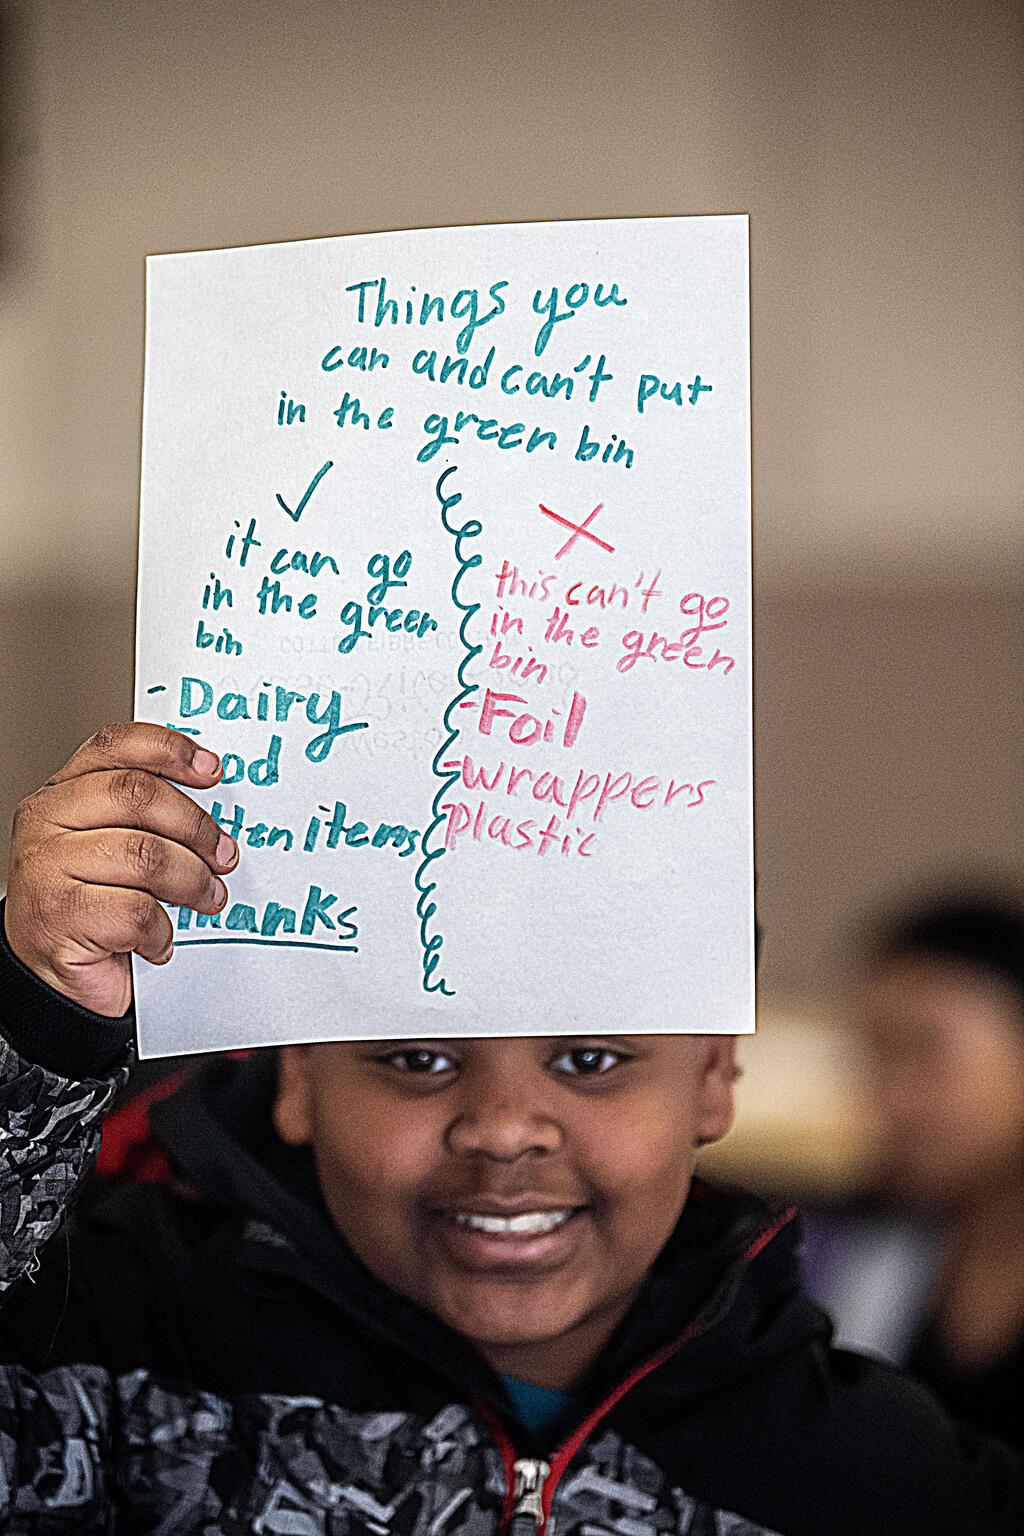 Things you
can and can't put
in the green bin
✓
it can go
in the green
bin
- Dairy
Food
items
thanks
X
this can't go
in the green
bin
- Foil
- wrappers
plastic